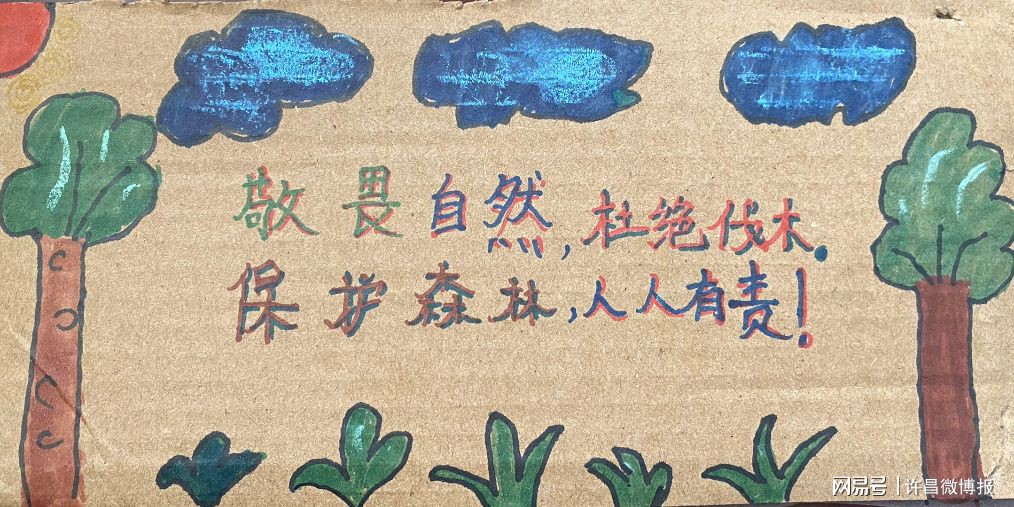 敬畏自然,杜绝伐木.
保护森林,人人有责!
网易号 | 许昌微博报